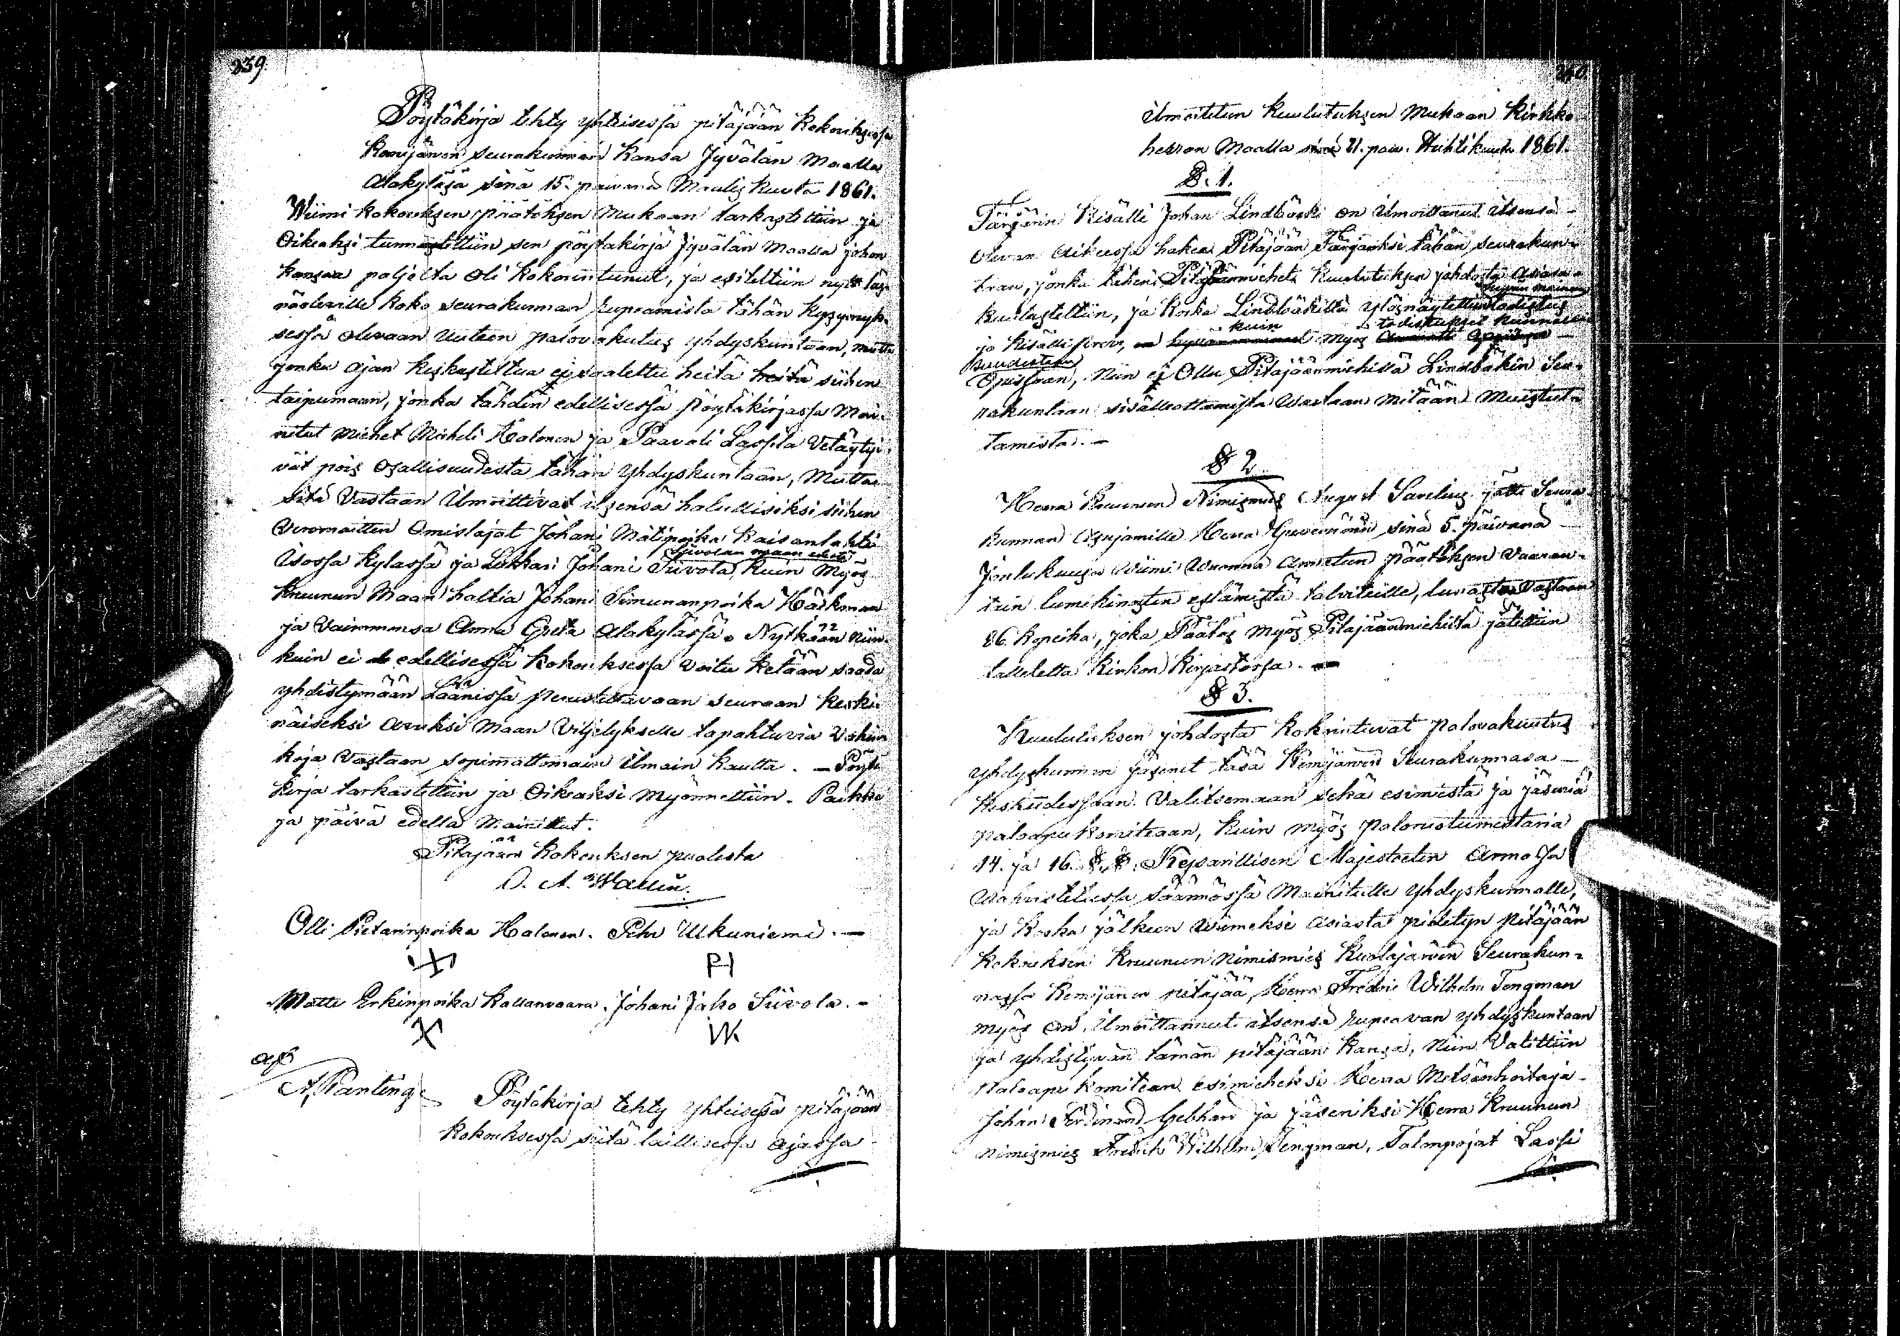 239.
Pöytäkirja tehty yhteisessä pitäjään kokouksessa
Kemijärven seurakunnan kansa Jyvälän Maalla
Alakylässä sinä 15. päivänä Mauliskuuta 1861.
Wiimi kokouksen päätöksen mukaan tarkastettiin ja
Oikeaksi tunnustettiin sen pöytäkirja Jyvälän Maalla johon
kansaa paljolta oli kokoontunut, ja esiteltiin nytt läs-
näoleville koko seurakunnan rupeamista tähän kysymyk-
sessä olevaan uuteen palovakutus yhdyskuntaan, mutta
jonka ajan keskusteltua ej vaalettu heitä siihen
taipumaan, jonka tähdin edellisessä pöytäkirjassa mai-
nitut miehet Mikeli Halonen ja Paavali Lassila Vetäytyi-
vät pois osallisuudesta tähän Yhdyskuntaan, Mutta
sitä Vastaan ilmoittivat itsensä halullisiksi siihen
Veromaitten Omistajat Johani Matinpoika Kaisanlahti
Usossa kylässä ja Lukkari Johani Siivola Siivolan maan edestä kuin Myös
Kruunun Maan haltia Johani Simunanpoika Härkman
ja Vaimonsa Anna Greta Alakylässä. Nytkään niin-
kuin ei edellisessä kokouksessa voitu ketään saada
yhdistymään Läänissä perustettavaan seuraan keski-
näiseksi avuksi Maan Viljelykselle tapahtuvia vahin-
koja Vastaan sopimattomain ilmain kautta. — Pöytä
kirja tarkastettiin ja Oikeaksi Myönnettiin. Paikka
ja päivä edellä mainitut.
Pitäjään kokouksen puolesta
O. A. Wallin.
Olli Pietarinpoika Halonen. Pehr Ukuniemi. —
Matti Erkinpoika Kallanvaara. Johani Jako Siivola. —
A. Planting
Pöytäkirja tehty yhteisessä pitäjään
kokouksessa siitä laillisessa ajassa
240.
ilmoitetun kuulutuksen Mukaan Kirkko-
herran Maalla sinä 21. päiv. Huhtikuuta 1861.
§. 1.
Färjärin Kisälli Johan Lindbäcki on ilmoittanut itsensä
olevan aikeessa hakea Pitäjään Färjäriksi tähän seurakun-
traan, jonka tähen Pitäjäänmiehet kuulutuksen johdosta asiasa
kuulusteltiin, ja koska Lindbäkillä ylösnäytettiin todistus
ja kisälli kuin myös todistukset kunnollisuudestaan
Opissaan, Niin ej Ollu Pitäjäänmiehillä Lindbäkin Seu-
rakuntaan sisälleottamista Vastaan mitään Muistutta
tamista. —
§ 2.
Herra Kruunun Nimismies August Savelius jätti Seura-
kunnan Herra Guvernöörin sinä 5. päivänä
Joulukuussa Wiimi Wuonna Annetun päätöksen Vaaran-
tein lumikinosten talviteille, Vastaan
86 kopeika, joka Päätös myös Pitäjäänmiehiltä jätettiin
talletetta Kirkon kirjastossa. —
§ 3.
Kuulutuksen johdosta kokountuvat palovakuutus
yhdyskunnan jäsenet täsä Kemijärven Seurakunnasa —
Keskudessaan Valitsemaan sekä esimestä ja jäseniä
paloapu komiteaan, kuin myös palorustumestaria
14. ja 16. §. §. Kejsarillisen Majesteetin Armossa
Vahvistetussa säännössä Mainitulle yhdyskunnalle,
ja koska jälkeen Wiimeksi asiasta pidetyn pitäjään
kokouksen Kruunun nimismies Kuolajärven Seurakun-
nassa Kemijärven pitäjää, Herra Fredric Wilhelm Tengman
myös on ilmoittannut itsensä rupeavan yhdyskuntaan
ja yhdistyvän tämän pitäjään kansa, niin Valittiin
Paloapu komitean esimieheksi Herra Metsänhoitaja
Johan Ferdinand Gebhard ja jäseniksi Herra Kruunun
nimismies Fredrik Wilhelm Tengman, Talonpojat Lassi